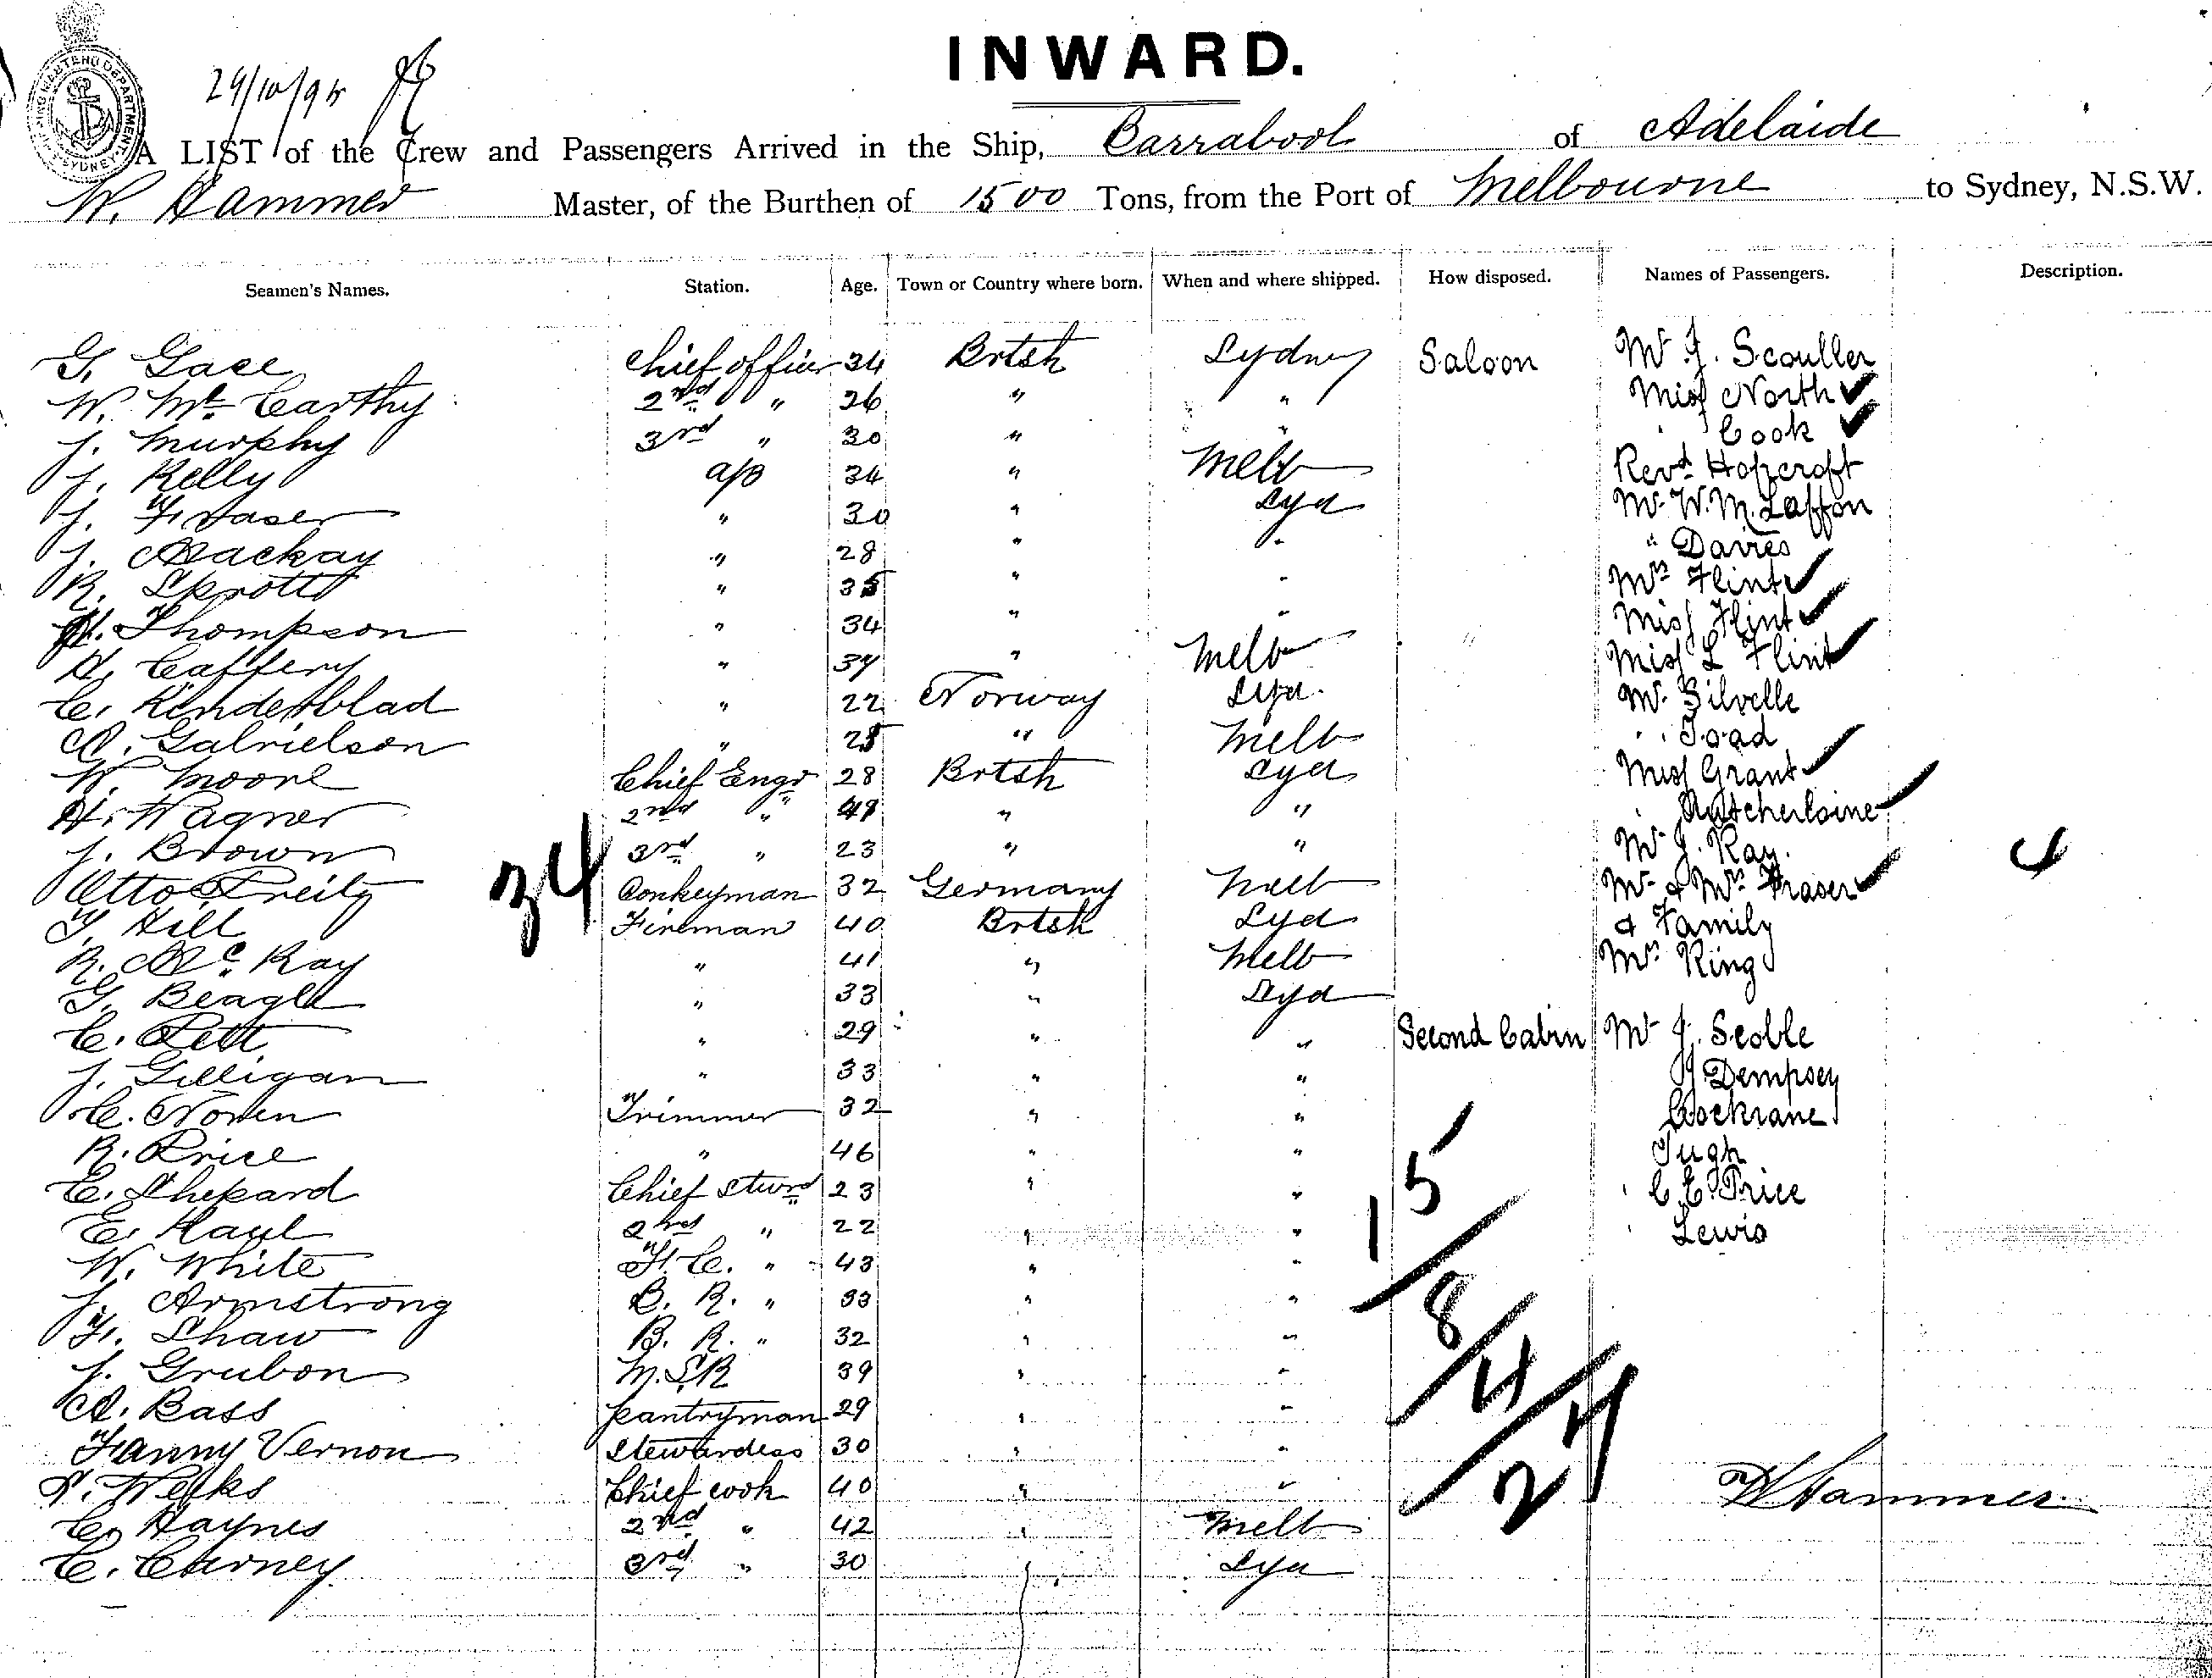 INWARD.
29/10/95
SHIPPING MASTER'S DEPARTMENT SYDNEY
A LIST of the Crew and Passengers Arrived in the Ship, Barrabool of Adelaide
W. Hammer Master, of the Burthen of 1500 Tons, from the Port of Melbourne to Sydney, N.S.W.
Seamen's Names. Station. Age. Town or Country where born. When and where shipped. How disposed. Names of Passengers. Description.
G. Gace Chief officer 34 Brtsh Sydney Saloon Mr J. Scouller
W. Mc Carthy 2nd " 26 " " Miss North
J. Murphy 3rd " 30 " " Cook
J. Kelly a/b 34 " Melb Revd Hopcroft
J. Fraser " 30 " Syd Mr W. M. Laffon
J. Mackay " 28 " " " Davies
R. Sprott " 35 " " Mrs Flint
H. Thompson " 34 " " Miss Flint
H. Caffery " 37 " Melb Miss L Flint
C. Kinderblad " 22 Norway Syd. Mr Silvelle
A. Gabrielson " 25 " Melb " Toad
W. Moore Chief Engr 28 Brtsh Syd Miss Grant
H. Wagner 2nd " 49 " " "
J. Brown 3rd " 23 " " Mr J. Ray.
Otto Donkeyman 32 Germany Melb Mr & Mrs Fraser
34
4
Hill Fireman 40 Brtsh Syd & Family
R. Mc Kay " 41 " Melb Mrs King
G. Beagle " 33 " Syd
C. Pett " 29 " " Second Cabin Mr J. Scoble
J. Gilligan " 33 " " J Dempsey
C. Noren Trimmer 32 " " Cockrane
R. Price " 46 " " Tugh
E. Shepard Chief Stwrd 23 " " " C. E. Price
E. Haul 2nd " 22 " " " Lewis
W. White F. C. " 43 " "
J. Armstrong B. R. " 33 " "
F. Shaw B. R. " 32 " "
J. Grubon M.S.R 39 " "
A. Bass pantryman 29 " "
Fanny Vernon Stewardess 30 " "
Weeks Chief cook 40 " "
C. Haynes 2nd " 42 " Melb
C. Carney 3rd " 30 " Syd
15/8/4/27
W Hammer